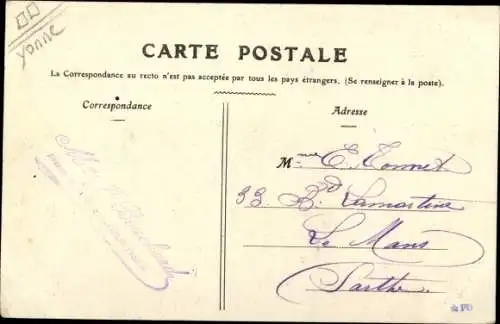 Yonne
CARTE POSTALE
La Correspondance au recto n'est pas acceptée par tous les pays étrangers. (Se renseigner à la poste).
Correspondance
Adresse
Mme E. Tonnet
33 Bd Lamartine
Le Mans
Sarthe